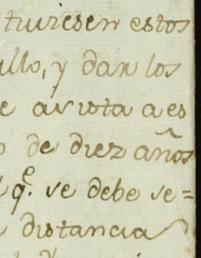 tuviesen estos
ullo, y dan los
e avista a es
o de diez años
l q.e se debe se=
e distancia